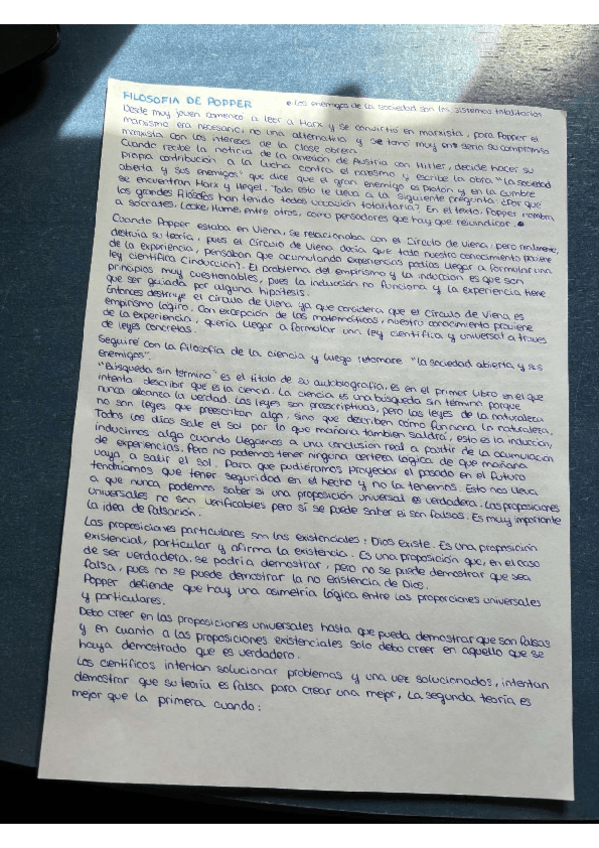 FILOSOFIA DE POPPER
• Los enemigos de la sociedad son los sistemas totalitarios
Desde muy joven comenzó a leer a Marx y se convirtió en marxista, para Popper el
marxismo era necesario, no una alternativa y se tomó muy en serio su compromiso
marxista con los intereses de la clase obrera.
Cuando recibe la noticia de la anexión de Austria con Hitler, decide hacer su
propia contribución a la lucha contra el nazismo y escribe la obra "La sociedad
abierta y sus enemigos" que dice que el gran enemigo es Platon y en la cumbre
se encuentran Marx y Hegel. Todo esto le lleva a la siguiente pregunta: ¿Por qué
los grandes filósofos han tenido todos vocación totalitaria? En el texto, Popper nombra
a Sócrates, Locke, Hume, entre otros, como pensadores que hay que reivindicar. •
Cuando Popper estaba en Viena, se relacionaba con el Círculo de Viena, pero realmente,
destruía su teoría, pues el Círculo de Viena decía que todo nuestro conocimiento proviene
de la experiencia, pensaban que acumulando experiencias podías llegar a formular una
ley científica (inducción). El problema del empirismo y la inducción es que son
principios muy cuestionables, pues la inducción no funciona y la experiencia tiene
que ser guiada por alguna hipótesis.
Entonces destruye el Círculo de Viena ya que considera que el Círculo de Viena es
empirismo lógico. Con excepción de las matemáticas, nuestro conocimiento proviene
de la experiencia, quería llegar a formular una ley científica y universal a traves
de leyes concretas.
Seguiré con la filosofía de la ciencia y luego retomare "la sociedad abierta y sus
enemigos".
"Búsqueda sin termino" es el título de su autobiografía, es en el primer libro en el que
intenta describir que es la ciencia. La ciencia es una búsqueda sin término porque
nunca alcanza la verdad. Las leyes son prescriptivas, pero las leyes de la naturaleza
no son leyes que prescriban algo, sino que describen cómo funciona la naturaleza.
Todos los días sale el sol por lo que mañana tambien saldrá, esto es la inducción,
inducimos algo cuando llegamos a una conclusion real a partir de la acumulación
de experiencias. Pero no podemos tener ninguna certeza lógica de que mañana
vaya a salir el sol. Para que pudiéramos proyectar el pasado en el futuro
tendríamos que tener seguridad en el hecho y no la tenemos. Esto nos lleva
a que nunca podemos saber si una proposición universal es verdadera. Las proposiciones
universales no son verificables pero sí se puede saber si son falsas. Es muy importante
la idea de falsación.
Las proposiciones particulares son las existenciales: Dios existe. Es una proposición
existencial, particular y afirma la existencia. Es una proposición que, en el caso
de ser verdadera, se podría demostrar, pero no se puede demostrar que sea
falsa, pues no se puede demostrar la no existencia de Dios.
Popper defiende que hay una asimetría lógica entre las proporciones universales
y particulares.
Debo creer en las proposiciones universales hasta que pueda demostrar que son falsas
y en cuanto a las proposiciones existenciales solo debo creer en aquello que se
haya demostrado que es verdadero.
Los científicos intentan solucionar problemas y una vez solucionados, intentan
demostrar que su teoría es falsa para crear una mejor, La segunda teoría es
mejor que la primera cuando: